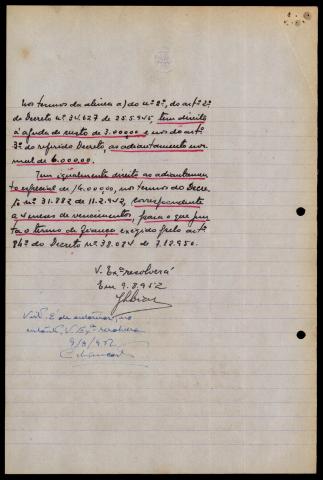 Nos termos da alinea a) do nº 2º, do artº 2º
do Decreto nº 34.627 de 25.5.945, tem direito
á ajuda de custo de 3.000$00 e nos do artº
3º do referido Decreto, ao adiantamento nor
mal de 6.000$00.
Tem igualmente direito ao adiantamen
to especial de 16.000$00, nos termos do Decre
to nº 31.882 de 11.2.942, correspondente
a 4 meses de vencimentos, para o que jun
ta o termo de fiança exigido pelo artº
84º do Decreto nº 38.084 de 7.12.950.
V. Exª resolverá
Em 9.8.952
Visto. É de autorizar, no
entanto, V. Exª resolverá
9/8/952